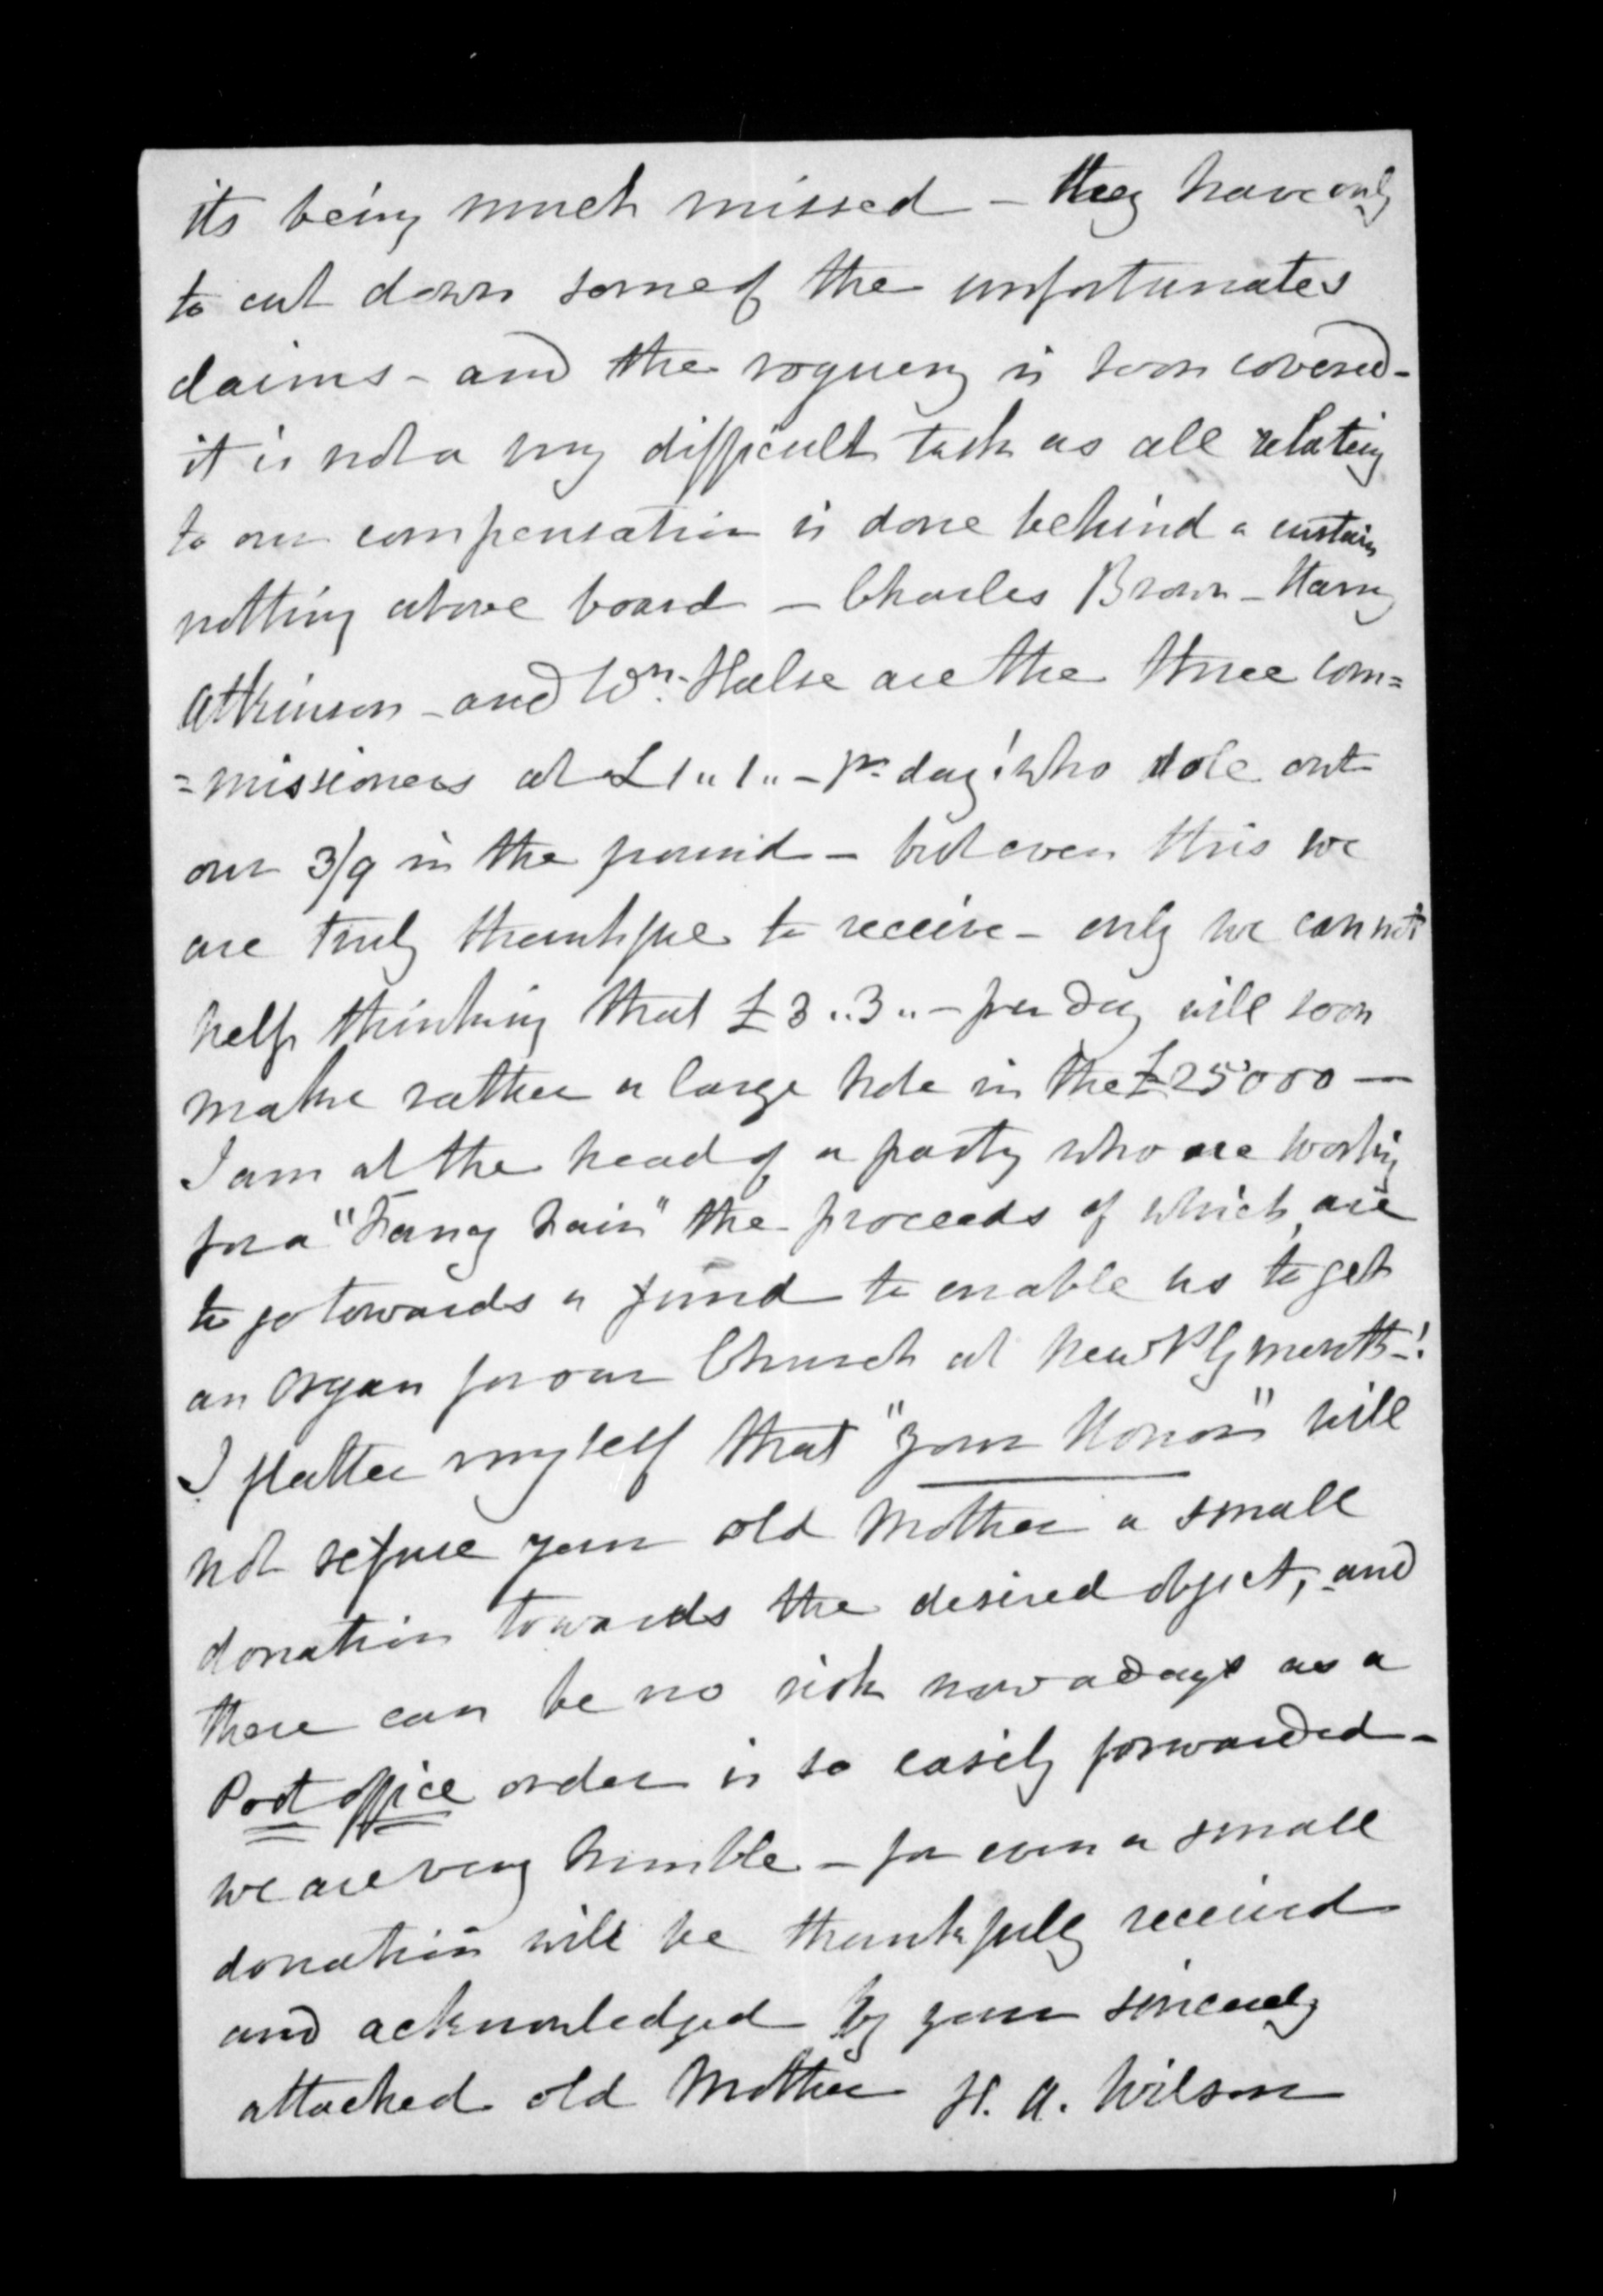 its being much missed - they have only
to cut down some of the unfortunates
claims - and the roguery is soon covered -
it is not a very difficult task as all relating
to our compensation is done behind a curtain
nothing above board - Charles Brown - Harry
Atkinson - and Wm. Halse are the three com=
=missioners at £1"1"- pr day! who dole out
our 3/9 in the pound - but even this we
are truly thankful to receive - only we cannot
help thinking that £3"3"- per day will soon
make rather a large hole in the £25'000 -
I am at the head of a party who are working
for a "Fancy Fair" the proceeds of which, are
to go towards a fund to enable us to get
an organ for our Church at New Plymouth -!
I flatter myself that "your Honor" will
not refuse your old Mother a small
donation towards the desired object, - and
there can be no risk nowadays as a
Post office order is so easily forwarded -
we are very humble - for even a small
donation will be thankfully received
and acknowledged by your sincerely
attached old Mother H. A. Wilson